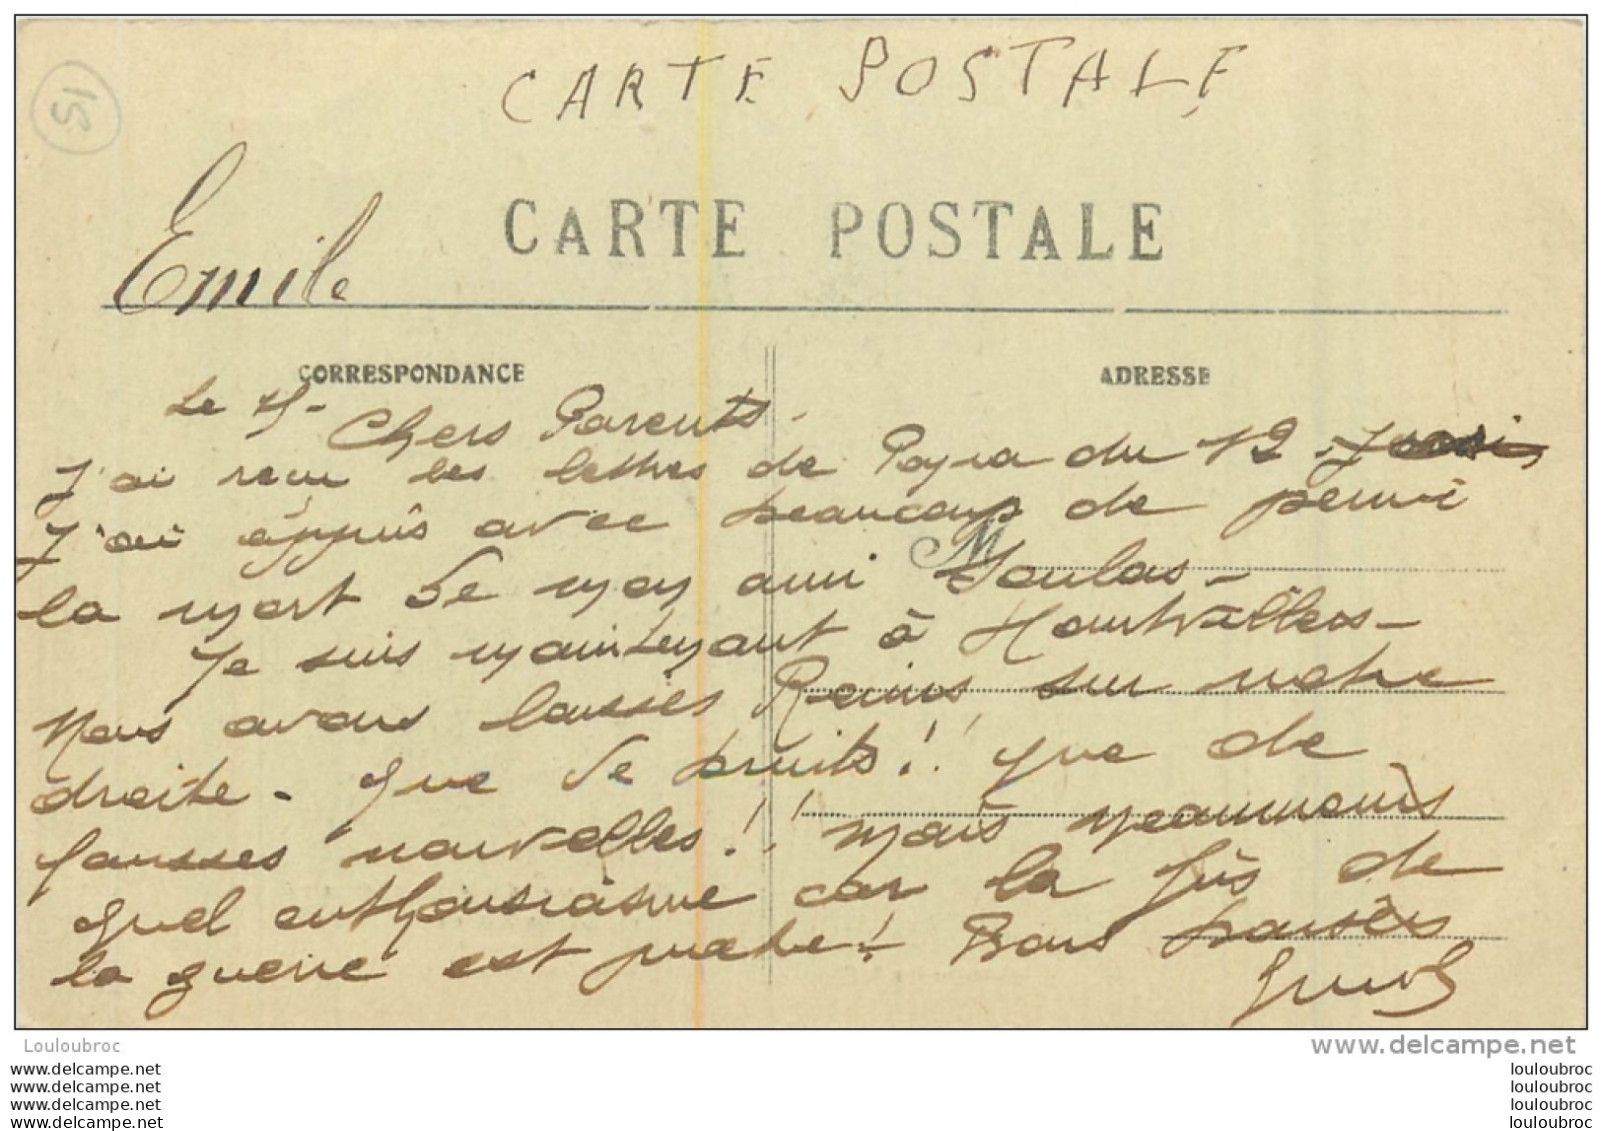 CARTE POSTALE
15
Emile
CARTE POSTALE
CORRESPONDANCE
ADRESSE
Le
Chers Parents -
J'ai recu les lettres de Papa du 12
J'ai appris avec beaucoup de peine
la mort de mon ami
Je suis maintenant à Hautvillers -
Nous avons laissés Reims sur notre
droite - que de bruits! que de
fausses nouvelles!! mais néanmoins
quel enthousiasme car la fin de
la guerre est proche! Bons baisers
Louloubroc
www.delcampe.net
www.delcampe.net
www.delcampe.net
www.delcampe.net
www.delcampe.net
louloubroc
louloubroc
louloubroc
louloubroc